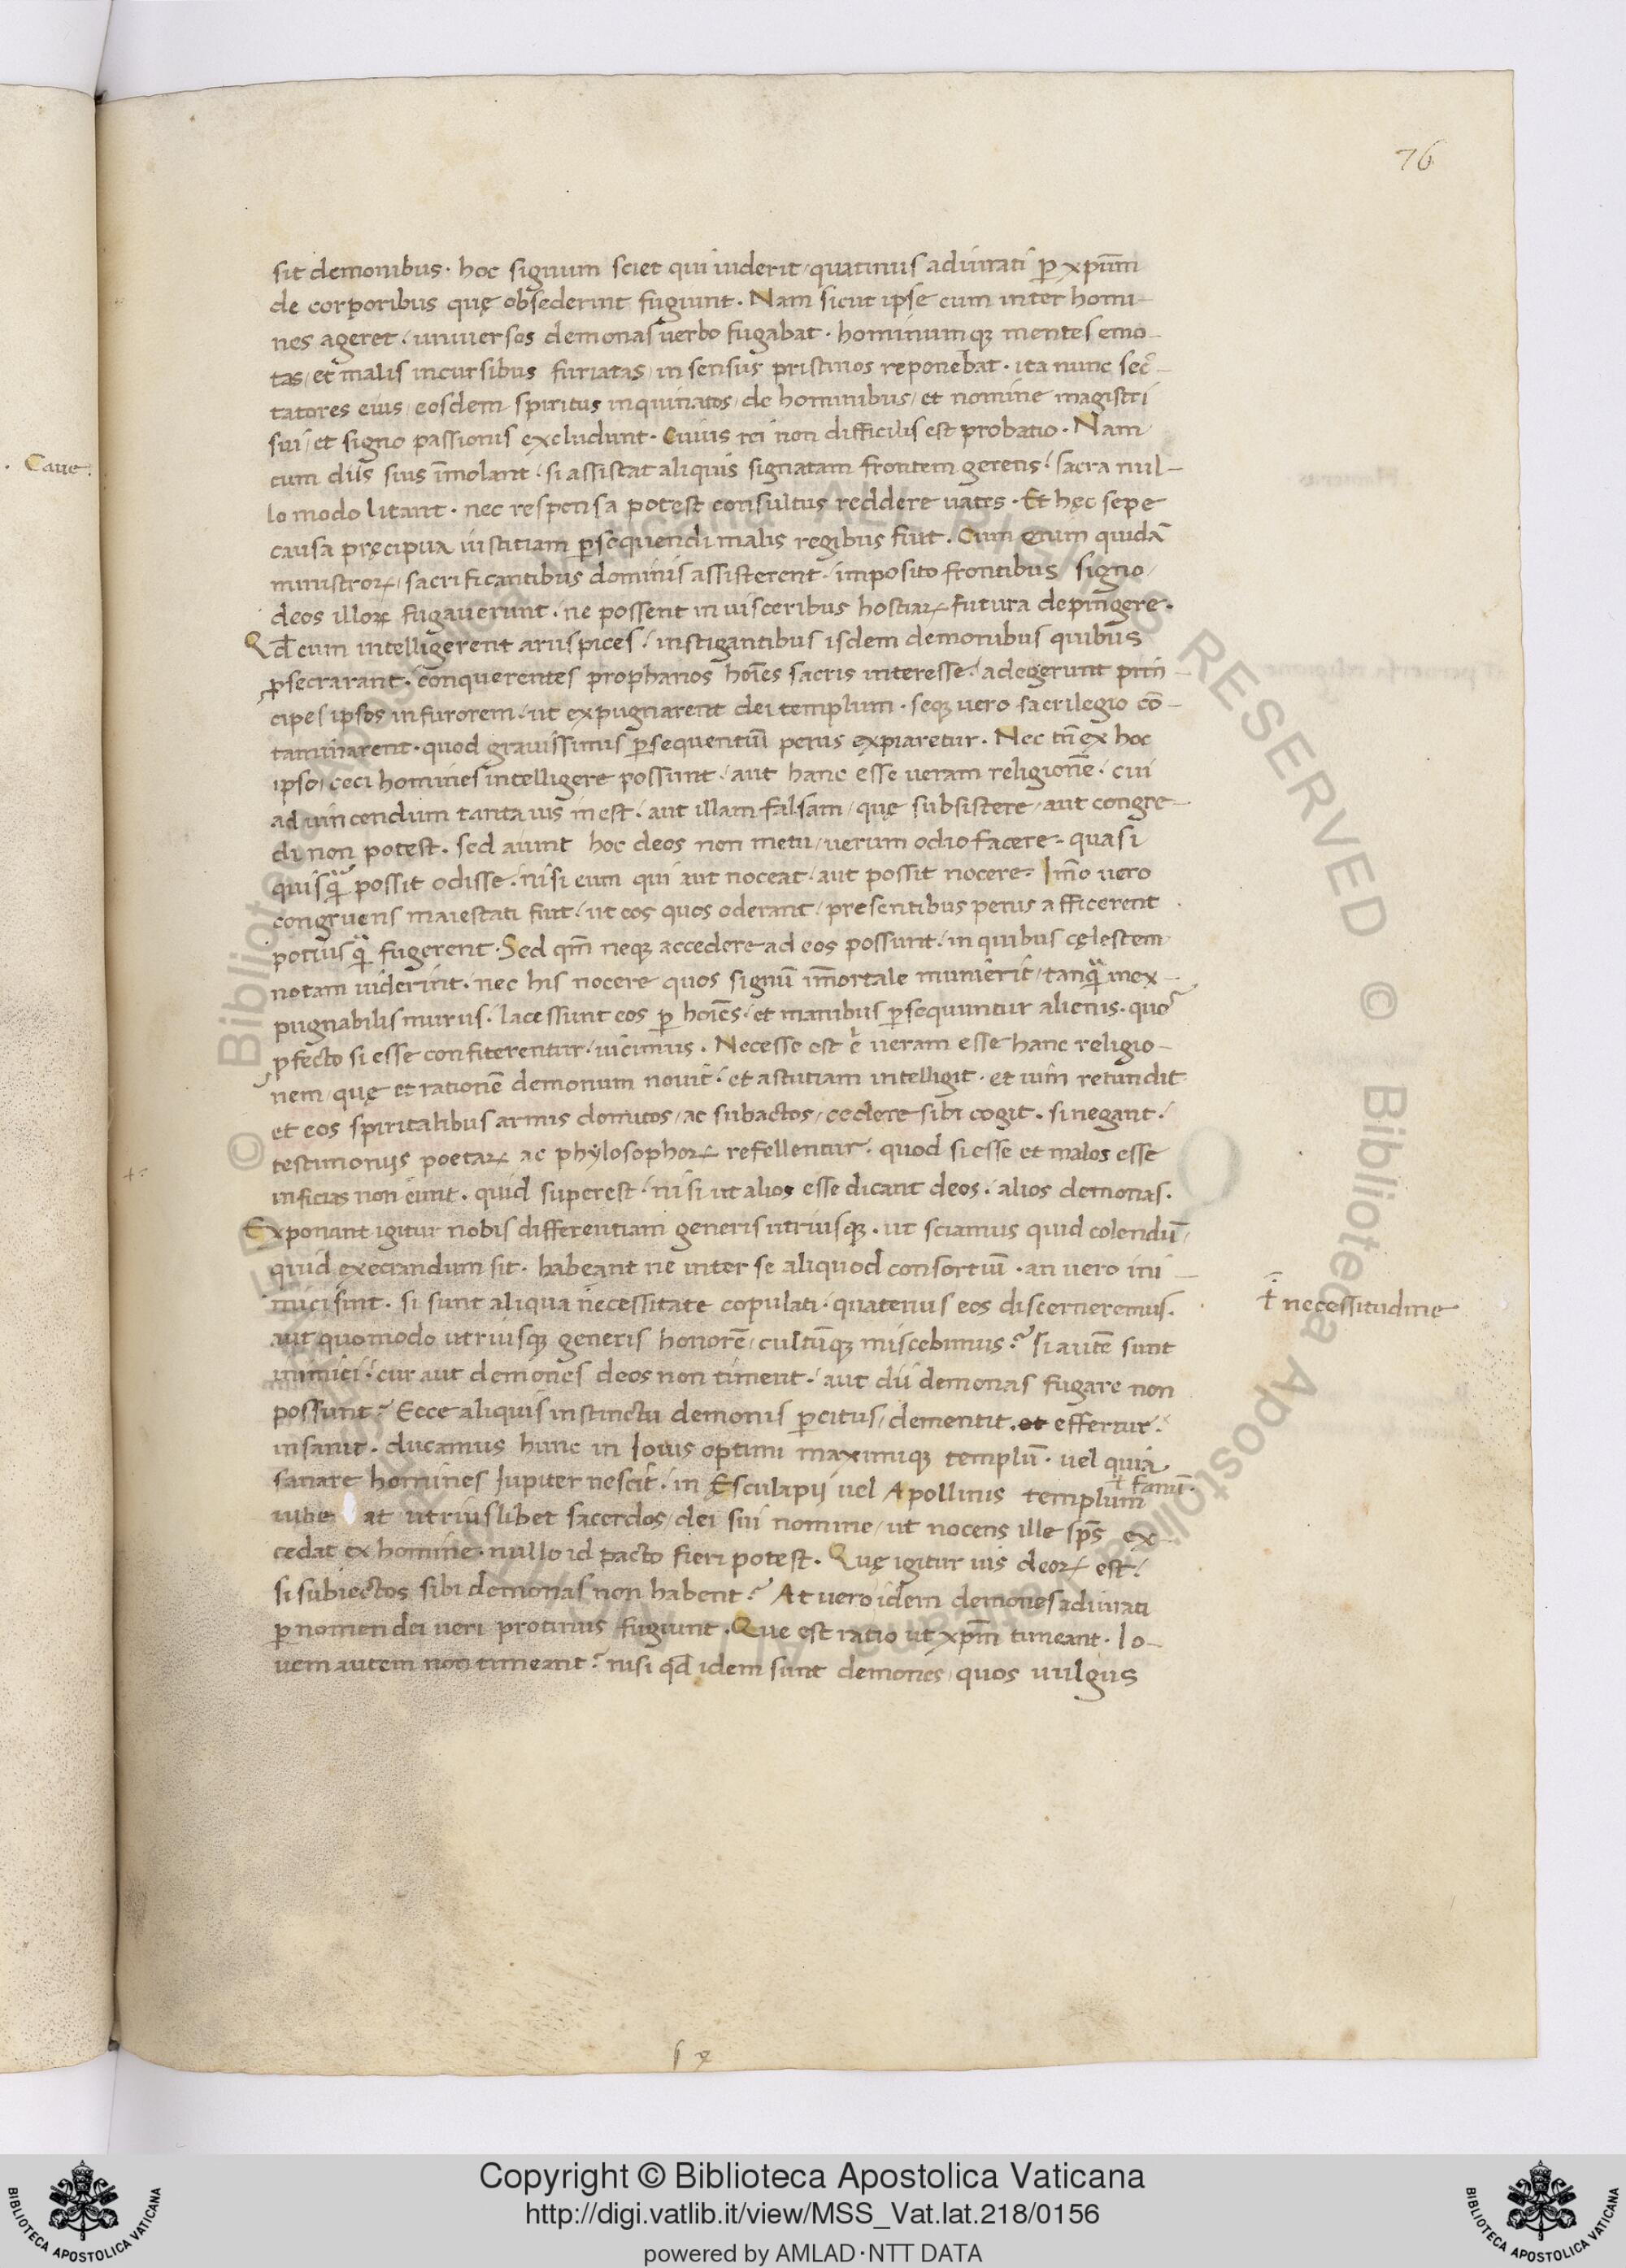 76
sit demonibus. hoc signum sciet qui uiderit, quatinus adiurati ꝑ xpiūm
de corporibus quę obsederint fugiunt. Nam sicut ipse cum inter homi-
nes ageret, uniuersos demonas uerbo fugabat. hominumqꝫ mentes emo-
tas, et malis incursibus furiatas, in sensus pristinos reponebat. ita nunc sec-
tatores eius, eosdem spiritus inquinatos, de hominibus, et nomine magistri
sui, et signo passionis excludunt. Cuius rei non difficilis est probatio. Nam
Caue.
cum diis suis īmolant, si assistat aliquis signatam frontem gerens, sacra nul-
lo modo litant. nec responsa potest consultus reddere uates. Et hęc sepe
causa pręcipua iustitiam ꝑsequendi malis regibus fuit. Cum enim quidā
ministroꝝ, sacrificantibus dominis assisterent, imposito frontibus signo,
deos illoꝝ fugauerunt, ne possent in uisceribus hostiaꝝ futura depingere.
Qđ cum intelligerent aruspices, instigantibus isdem demonibus quibus
ꝓsecrarant, conquerentes prophanos hoīes sacris interesse, adegerunt prin-
cipes ipsos in furorem, ut expugnarent dei templum, seqꝫ uero sacrilegio cō-
taminarent. quod grauissimis ꝑsequentiū penis expiaretur. Nec tn̄ ex hoc
ipso, ceci homines intelligere possunt, aut hanc esse ueram religionē, cui
ad uincendum tanta uis inest, aut illam falsam, quę subsistere, aut congre-
di non potest. sed aiunt hoc deos non metu, uerum odio facere. quasi
quisꝙ̃ possit odisse, nisi eum qui aut noceat, aut possit nocere. Im̄o uero
congruens maiestati fuit, ut eos quos oderant, presentibus penis afficerent
potiusꝙ̃ fugerent. Sed qm̄ neqꝫ accedere ad eos possunt, in quibus cęlestem
notam uiderint, nec his nocere quos signū im̄ortale munierit, tanꝙ̃ inex-
pugnabilis murus, lacessunt eos ꝑ hoīes, et manibus ꝑsequuntur alienis. quos
ꝓfecto si esse confiterentur, uicimus. Necesse est .n. ueram esse hanc religio-
nem, quę et rationē demonum nouit, et astutiam intelligit, et uim retundit
et eos spiritalibus armis domitos, ac subactos, cedere sibi cogit. si negant,
testimoniis poetaꝝ ac phylosophoꝝ refellentur. quod si esse et malos esse
inficias non eunt, quid superest, nisi ut alios esse dicant deos, alios demonas.
Exponant igitur nobis differentiam generis utriusqꝫ. ut sciamus quid colendū,
quid execrandum sit. habeant ne inter se aliquod consortiū, an uero ini-
mici sint. si sunt aliqua necessitate copulati, quatenus eos discerneremus.
ł necessitudine
aut quomodo utriusqꝫ generis honorē, cultūqꝫ miscebimus? si autē sunt
inimici, cur aut demones deos non timent, aut dii demonas fugare non
possunt? Ecce aliquis instinctu demonis ꝑcitus, dementit. et effertur.
insanit. ducamus hunc in Iouis optimi maximiqꝫ templū. uel quia
sanare homines Iupiter nescit, in Esculapii uel Apollinis templum
ł fanū.
iube at utriuslibet sacerdos, dei sui nomine, ut nocens ille sp̄s ex-
cedat ex homine. nullo id pacto fieri potest. Quę igitur uis deoꝝ est,
si subiectos sibi demonas non habent? At uero idem demones adiurati
ꝑ nomen dei ueri protinus fugiunt. Que est ratio ut xp̄m timeant. Io-
uem autem non timeant? nisi qđ idem sunt demones, quos uulgus
Copyright © Biblioteca Apostolica Vaticana
http://digi.vatlib.it/view/MSS_Vat.lat.218/0156
powered by AMLAD·NTT DATA
BIBLIOTECA APOSTOLICA VATICANA
BIBLIOTECA APOSTOLICA VATICANA